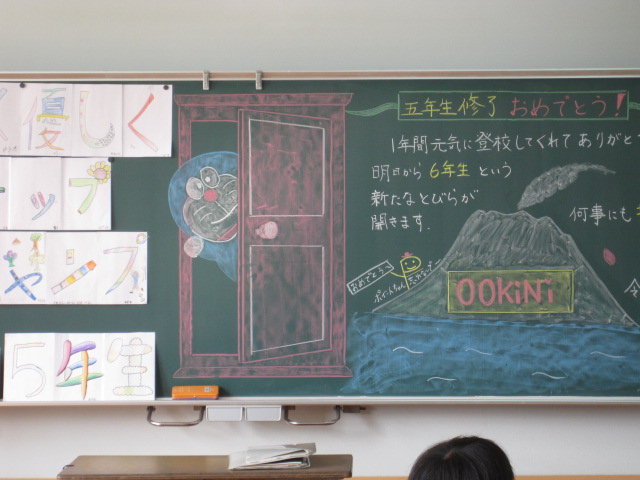 く優しく
ップ
ャンプ
5年生
五年生修了 おめでとう!
1年間元気に登校してくれて ありがと
明日から 6年生 という
新たなとびらが
開きます.
何事にも
おめでとう
OOKiNi